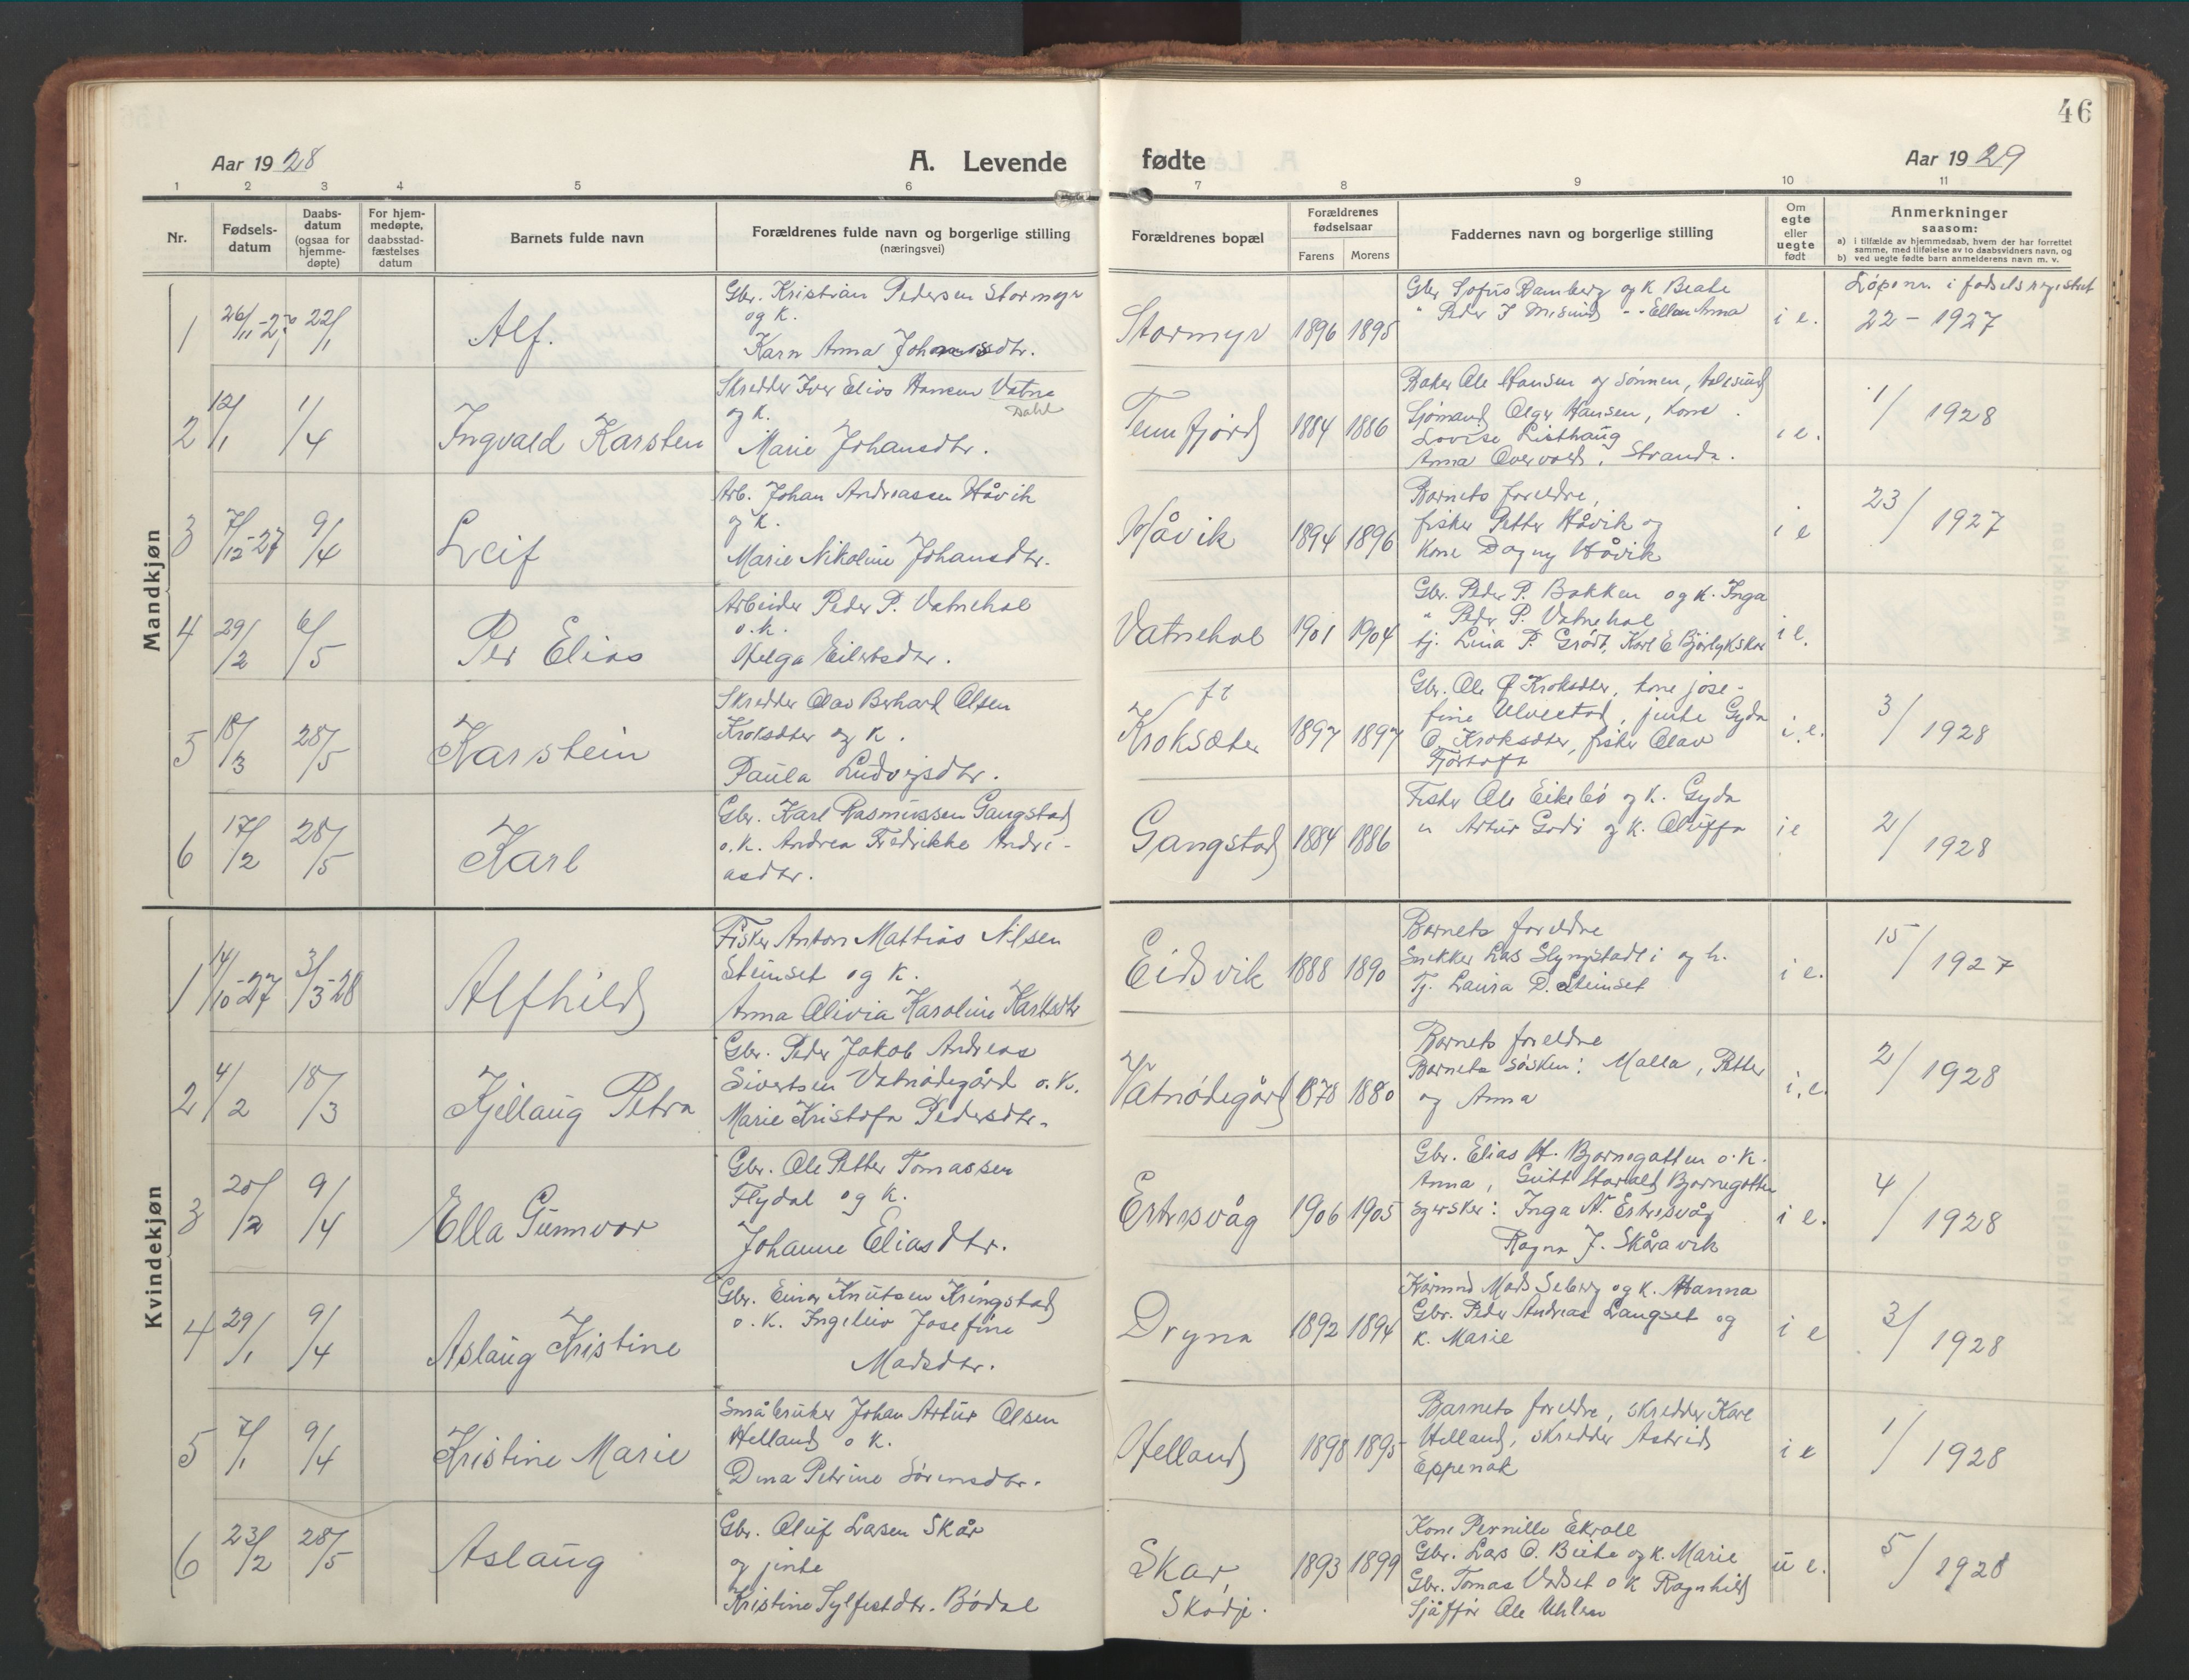 46
Aar 1928
A. Levende
fødte
Aar 1929
1 2 3 4 5 6 7 8 9 10 11
Nr.
Fødsels-
datum
Daabs-
datum
(ogsaa for
hjemme-
døpte)
For hjem-
medøpte,
daabsstad-
fæstelses
datum
Barnets fulde navn
Forældrenes fulde navn og borgerlige stilling
(næringsvei)
Forældrenes bopæl
Forældrenes
fødselsaar
Farens Morens
Faddernes navn og borgerlige stilling
Om
egte
eller
uegte
født
Anmerkninger
saasom:
a) i tilfælde av hjemmedaab, hvem der har forrettet
samme, med tilføielse av to daabsvidners navn, og
b) ved uegte fødte barn anmelderens navn m. v.
Mandkjøn
1
26/11-27
22/1
Alf.
Gbr. Kristian Pedersen Stormyr
og k.
Karn Anna Johansdtr.
Stormyr
1896 1895
Gbr Sofus Ramberg og k Beate
" Peder J Misund - - Ellen Anna
i e.
Løpenr. i fødselsregistret
22 - 1927
2
12/1
1/4
Ingvald Karsten
Skredder Iver Elias Hansen Vatne
og k. Dahl
Marie Johansdtr.
Tennfjord
1884 1886
Baker Ole Hansen og sønnen, Aalesund
Sjømand Olger Hansen, kone
Lovise Listhaug
Anna Overvoll, Stranda.
i e.
1/1928
3
7/12-27
9/4
Leif
Arb. Johan Andreassen Håvik
og k.
Marie Nikoline Johansdtr.
Håvik
1894 1896
Barnets foreldre,
fisker Petter Håvik og
kone Dagny Håvik
i e
23/1927
4
29/2
6/5
Per Elias
Arbeider Peder P. Vatnehol
o. k.
Helga Eilertsdtr.
Vatnehol
1901 1904
Gbr. Peder P. Bakken og k. Inga
" Peder P. Vatnehol
tj. Lina P. Grødt, Karl E Bjørlykskar
i e.
5
18/3
28/5
Karstein
Skredder Olav Berhard Olsen
Kroksæter og k.
Paula Ludvigsdtr.
Kroksæter
1897 1897
Gbr. Ole Kroksæter, kone Jose-
fine Ulvestad, jente Gyda
O. Kroksæter, fisker Olav
Fjørtoft
i.e.
3/1928
6
17/2
28/5
Karl
Gbr. Karl Rasmussen Gangstad
o. k. Andrea Fredrikke Andre-
asdtr.
Gangstad
1884 1886
Fisker Ole Eikebø og k. Gyda
" Artur Godø og k. Oluffa
i e
2/1928
Kvindekjøn
1
14/10-27
3/3-28
Alfhild
Fisker Anton Mattias Nilsen
Steinset og k.
Anna Olivia Karoline Karlsdtr
Eidsvik
1888 1890
Barnets foreldre
Snekker Las Slyngstadli og h.
Tj. Laura D. Steinset
i e.
15/1927
2
4/2
18/3
Kjellaug Petra
Gbr. Peder Jakob Andreas
Sivertsen Vatnødegård o. k.
Marie Kristofa Pedersdtr.
Vatnødegård
1878 1880
Barnets foreldre
Barnets søsken: Malla, Petter
og Anna
i.e.
2/1928
3
20/2
9/4
Ella Gunnvor
Gbr. Ole Petter Tomassen
Flydal og k.
Johanne Eliasdtr.
Ertresvåg
1906 1905
Gbr. Elias H. Bjørnegatten o. k.
Anna, Gutt Harald Bjørnegotten
: Inga N. Ertresvåg
Ragna J. Skåravik
i e.
4/1928
4
29/1
9/4
Aslaug Kristine
Gbr. Einar Knutsen Kringstad
o. k. Ingeleiv Josefine
Madsdtr.
Dryna
1892 1894
Mads Seberg og k. Hanna
Gbr. Peder Andreas Langset og
k. Marie
i e
3/1928
5
7/1
9/4
Kristine Marie
Småbruker Johan Artur Olsen
Helland o k.
Dina Petrine Sørensdtr.
Helland
1898 1895
Barnets foreldre, skredder Kare
Helland, skredder Astrid
Eppenak
i e
1/1928
6
23/2
28/5
Aslaug
Gbr. Oluf Lasen Skår
og jente
Kristine Sylfestdtr. Bødal
Skar
Skodje.
1893 1899
Kone Pernille Ekroll
Gbr. Lars O. Beite og k. Marie
Gbr. Tomas Vadset o k Ragnhild
Sjåffør Ole Uhlen
u e.
5/1928